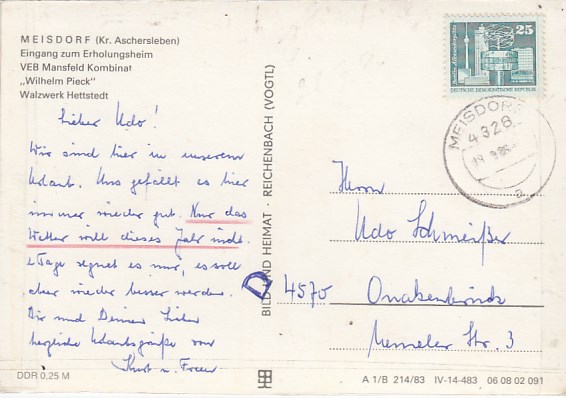 MEISDORF (Kr. Aschersleben)
Eingang zum Erholungsheim
VEB Mansfeld Kombinat
„Wilhelm Pieck"
Walzwerk Hettstedt
Lieber Udo!
Wir sind hier in unserem
Urlaub. Uns gefällt es hier
immer wieder gut. Nur das
Wetter will dieses Jahr nicht.
Tage regnet es nur, es soll
aber wieder besser werden.
Dir und Deinen Lieben
herzliche Urlaubsgrüße von
Kurt u. Frau
DDR 0,25 M
BILD UND HEIMAT · REICHENBACH (VOGTL)
25
DEUTSCHE DEMOKRATISCHE REPUBLIK
MEISDORF
4328
a
Herrn
Udo Schmeißer
D 4570
Quakenbrück
Memeler Str. 3
A 1/B 214/83 IV-14-483 06 08 02 091